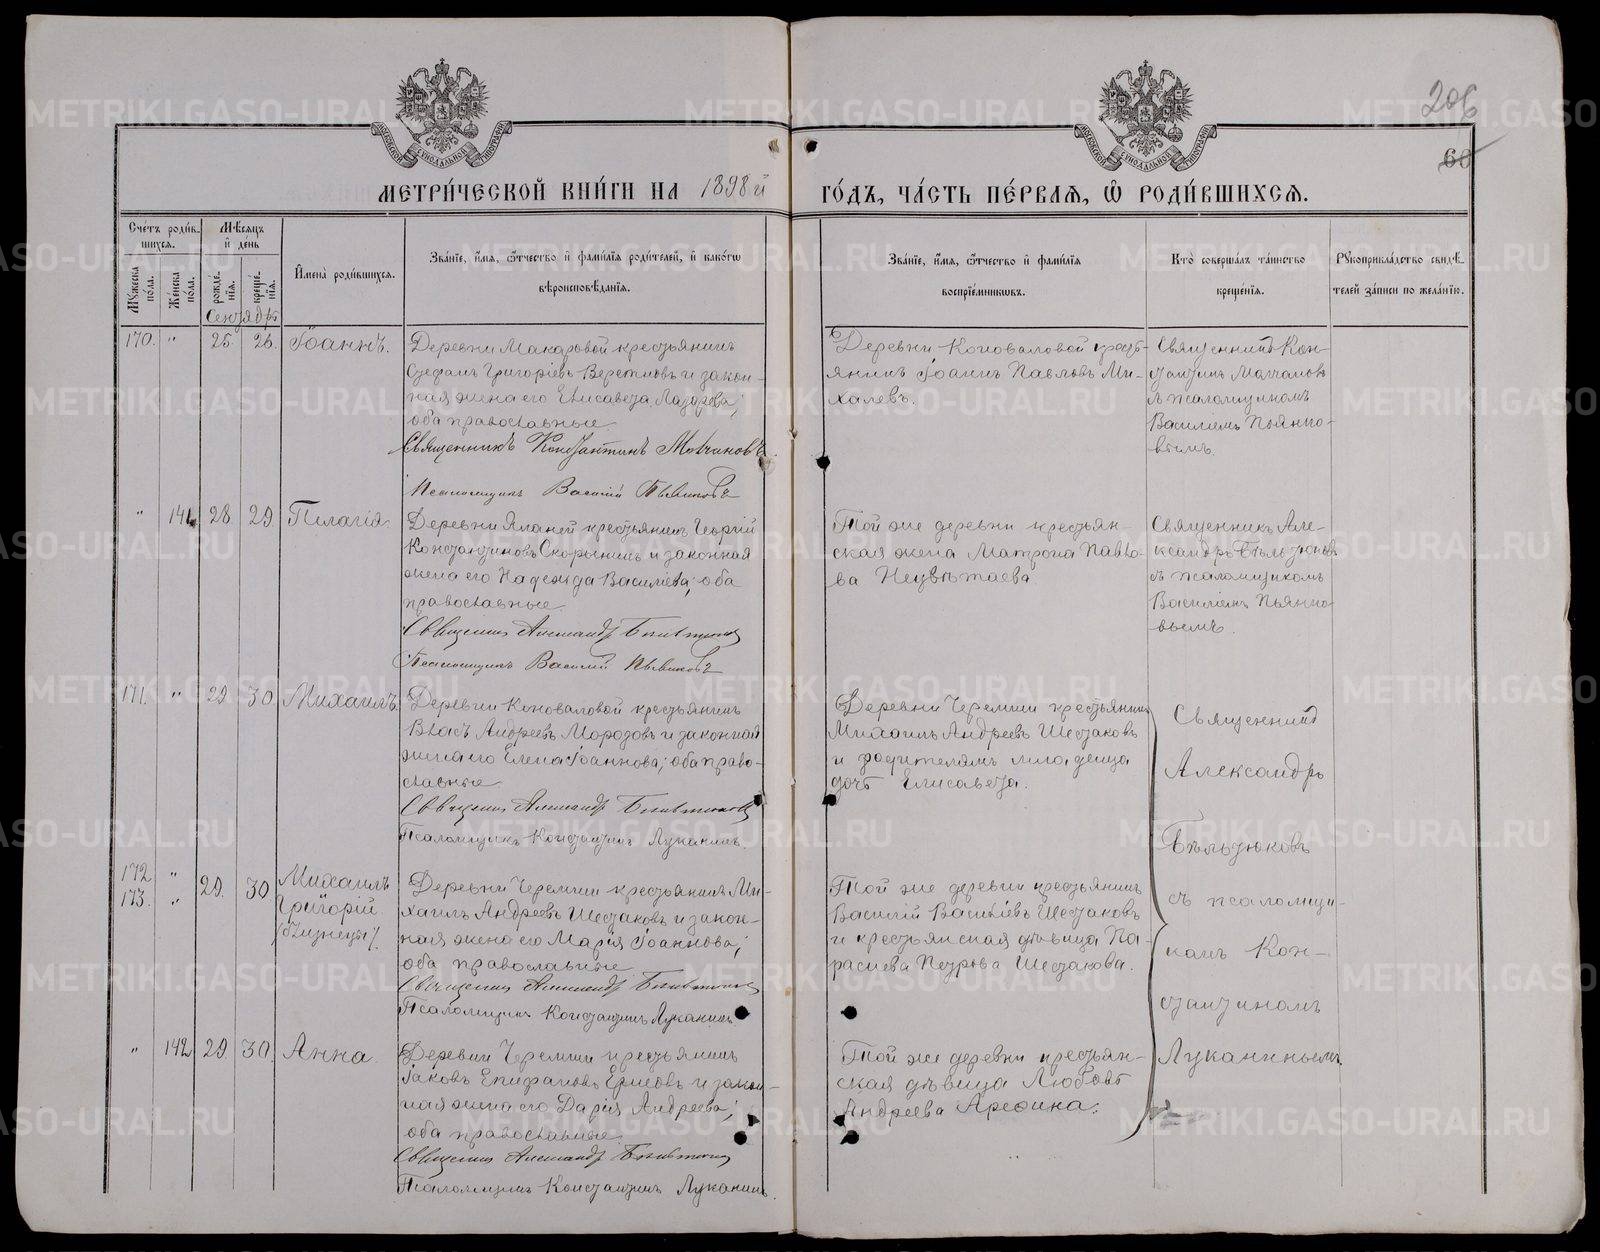 206
60
МОСКОВСКОЙ СѴНОДАЛЬНОЙ ТИПОГРАФІИ
МОСКОВСКОЙ СѴНОДАЛЬНОЙ ТИПОГРАФІИ
МЕТРИ́ЧЕСКОЙ КНИ́ГИ НА 1898й
ГО́ДЪ, ЧА́СТЬ ПЕ́РВАЯ, Ѡ҆ РОДИ́ВШИХСЯ.
Счетъ роди́в-
шихся.
Мѣ́сяцъ
и҆ де́нь
Мꙋжеска по́ла.
Же́нска по́ла.
рожде́-
нїя.
креще́-
нїя.
Сентябрь
И҆мена̀ роди́вшихся.
Зва́нїе, и҆́мя, ѻ҆́тчество и҆ фами́лїя роди́телей, и҆ како́гѡ
вѣроисповѣ́данїя.
Зва́нїе, и҆́мя, ѻ҆́тчество и҆ фами́лїя
воспрїе́мниковъ.
Кто̀ соверша́лъ та́инство
креще́нїя.
Рꙋкоприкла́дство свидѣ́-
телей за́писи по жела́нїю.
170. " 25. 26. Іоаннъ.
Деревни Макаровой крестьянинъ
Стефанъ Григоріевъ Веретновъ и закон-
ная жена его Елисавета Лазарева;
оба православные.
Священникъ Константинъ Молчановъ
Псаломщикъ Василій Пьянковъ
Деревни Коноваловой кресть-
янинъ Іоаннъ Павловъ Ми-
халевъ.
Священникъ Кон-
стантинъ Молчановъ
съ псаломщикомъ
Василіемъ Пьянко-
вымъ.
" 141. 28. 29. Пелагія.
Деревни Яланей крестьянинъ Георгій
Константиновъ Скорынинъ и законная
жена его Надежда Василіева; оба
православные.
Священникъ Александръ Бѣльтюковъ
Псаломщикъ Василій Пьянковъ
Той же деревни крестьян-
ская жена Матрона Павло-
ва
Священникъ Але-
ксандръ Бѣльтюковъ
съ псаломщикомъ
Василіемъ Пьянко-
вымъ.
171. " 29. 30 Михаилъ.
Деревни Коноваловой крестьянинъ
Власъ Андреевъ Морозовъ и законная
жена его Елена Іоаннова; оба право-
славные
Священникъ Александръ Бѣльтюковъ
Псаломщикъ Константинъ Луканинъ.
Деревни Черемши крестьянинъ
Михаилъ Андреевъ Шестаковъ
и родителямъ младенца
дочь Елисавета.
Священникъ
Александръ
Бѣльтюковъ
съ псаломщи-
комъ Кон-
стантиномъ
Луканинымъ.
172 "
173. " 29. 30
Михаилъ
Григорій
/близнецы/.
Деревни Черемши крестьянинъ Ми-
хаилъ Андреевъ Шестаковъ и закон-
ная жена его Марія Іоаннова;
оба православные
Священникъ Александръ Бѣльтюковъ
Псаломщикъ Константинъ Луканинъ
Той же деревни крестьянинъ
Василій Василіевъ Шестаковъ
и крестьянская дѣвица Па-
раскева Петрова Шестакова.
" 142 29 30 Анна.
Деревни Черемши крестьянинъ
Іаковъ Епифановъ и закон-
ная жена его Дарія Андреева;
оба православные.
Священникъ Александръ Бѣльтюковъ
Псаломщикъ Константинъ Луканинъ.
Той же деревни крестьян-
ская дѣвица Любовь
Андреева Арефина.
METRIKI.GASO-URAL.RU